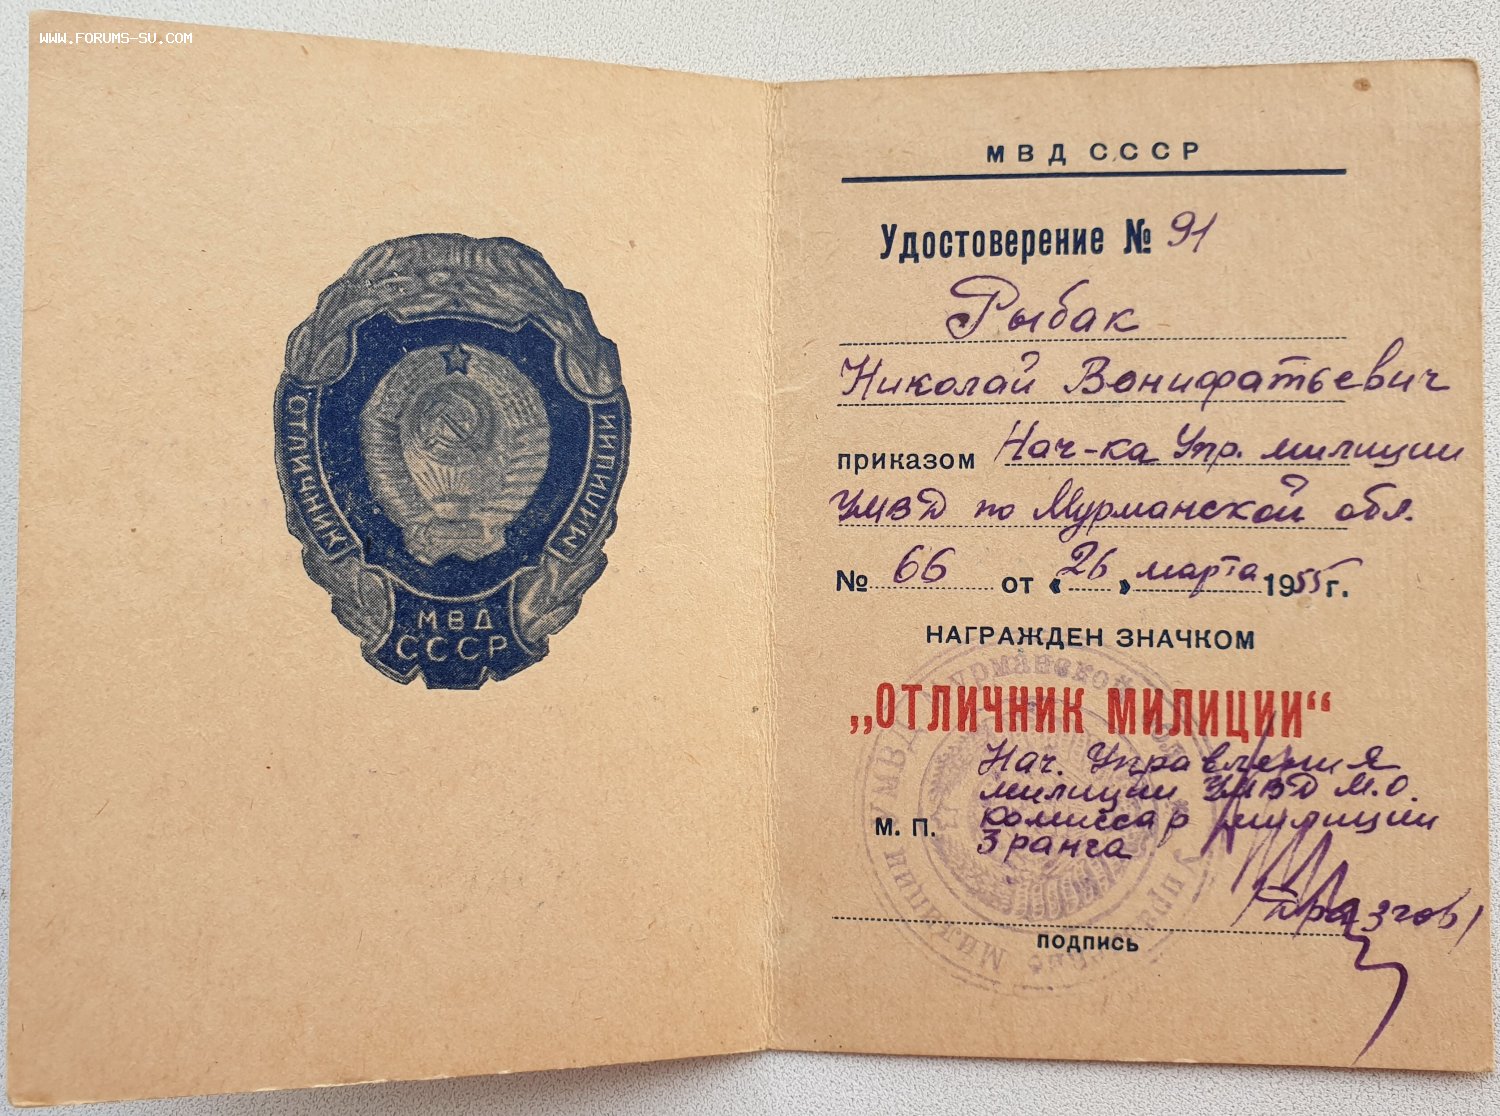 WWW.FORUMS-SU.COM
ОТЛИЧНИК
МИЛИЦИИ
МВД
СССР
МВД СССР
Удостоверение № 91
Рыбак
Николай Вонифатьевич
приказом Нач-ка Упр. милиции
УМВД по Мурманской обл.
№ 66 от «26» марта 1955 г.
НАГРАЖДЕН ЗНАЧКОМ
„ОТЛИЧНИК МИЛИЦИИ“
Нач. Управления
милиции УМВД М.О.
комиссар милиции
3 ранга
М. П.
подпись
УМВД Мурманской обл. * Управление Милиции